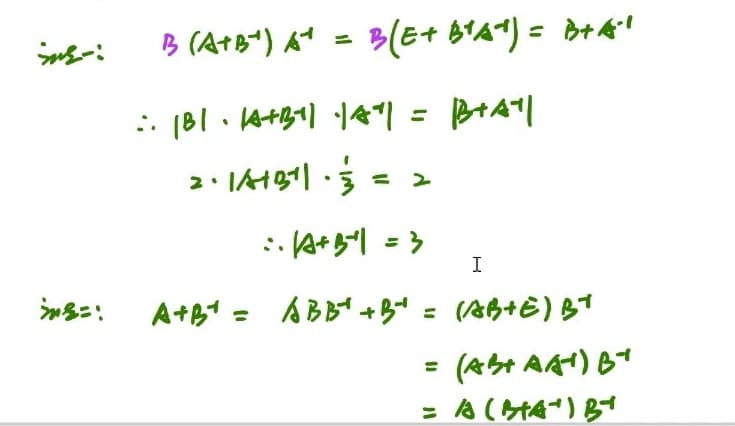 法一: B(A+B⁻¹)A⁻¹ = B(E+B⁻¹A⁻¹) = B+A⁻¹
∴ |B|·|A+B⁻¹|·|A⁻¹| = |B+A⁻¹|
2·|A+B⁻¹|·1/3 = 2
∴ |A+B⁻¹| = 3
法二: A+B⁻¹ = ABB⁻¹+B⁻¹ = (AB+E)B⁻¹
= (AB+AA⁻¹)B⁻¹
= A(B+A⁻¹)B⁻¹